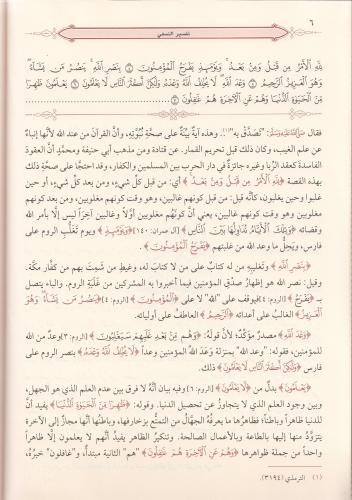 ٦
تفسير النسفي
لِلَّهِ الْأَمْرُ مِن قَبْلُ وَمِن بَعْدُ وَيَوْمَئِذٍ يَفْرَحُ الْمُؤْمِنُونَ ۝ بِنَصْرِ اللَّهِ يَنصُرُ مَن يَشَاءُ
وَهُوَ الْعَزِيزُ الرَّحِيمُ ۝ وَعْدَ اللَّهِ لَا يُخْلِفُ اللَّهُ وَعْدَهُ وَلَٰكِنَّ أَكْثَرَ النَّاسِ لَا يَعْلَمُونَ ۝ يَعْلَمُونَ ظَاهِرًا
مِّنَ الْحَيَوٰةِ الدُّنْيَا وَهُمْ عَنِ الْآخِرَةِ هُمْ غَافِلُونَ ۝
فقال ﷺ: «تصدَّق به»(١). وهذه آية بيّنة على صحَّة نُبوَّته، وأنَّ القرآن من عند الله لأنَّها إنباءٌ
عن علم الغيب، وكان ذلك قبل تحريم القمار. عن قتادة ومن مذهب أبي حنيفة ومحمَّدٍ أنَّ العقودَ
الفاسدة كعقد الرِّبا وغيره جائزةٌ في دار الحرب بين المسلمين والكفار، وقد احتجَّا على صحَّة ذلك
بهذه القصة ﴿لِلَّهِ الْأَمْرُ مِن قَبْلُ وَمِن بَعْدُ﴾ أي: من قبل كلِّ شيءٍ، ومن بعد كلِّ شيءٍ، أو حين
غلبوا وحين يغلبون، كأنَّه قيل: من قبل كونهم غالبين، وهو وقت كونهم مغلوبين، ومن بعد كونهم
مغلوبين، وهو وقت كونهم غالبين، يعني أنَّ كونهم مغلوبين أوَّلاً وغالبين آخراً ليس إلَّا بأمر الله
وقضائه ﴿وَتِلْكَ الْأَيَّامُ نُدَاوِلُهَا بَيْنَ النَّاسِ﴾ [آل عمران: ١٤٠] ﴿وَيَوْمَئِذٍ﴾ ويوم تغلب الروم على
فارس، ويحلُّ ما وعد الله من غلبتهم ﴿يَفْرَحُ الْمُؤْمِنُونَ﴾.
﴿بِنَصْرِ اللَّهِ﴾ وتغليبه من له كتابٌ على من لا كتابَ له، وغيظ من شَمِت بهم من كفَّار مكَّة.
وقيل: نصر الله هو إظهار صدق المؤمنين فيما أخبروا به المشركين من غلبة الروم. والباء يتصل
بـ ﴿يَفْرَحُ﴾ [الروم: ٤] فيوقف على «الله» لا على ﴿الْمُؤْمِنُونَ﴾ [الروم: ٤] ﴿يَنصُرُ مَن يَشَاءُ وَهُوَ
الْعَزِيزُ﴾ الغالب على أعدائه ﴿الرَّحِيمُ﴾ العاطف على أوليائه.
﴿وَعْدَ اللَّهِ﴾ مصدرٌ مؤكِّدٌ؛ لأنَّ قولَهُ: ﴿وَهُم مِّن بَعْدِ غَلَبِهِمْ سَيَغْلِبُونَ﴾ [الروم: ٣] وعدٌ من الله
للمؤمنين، فقوله: «وعد الله» بمنزلة وَعَدَ اللهُ المؤمنين وعداً ﴿لَا يُخْلِفُ اللَّهُ وَعْدَهُ﴾ بنصر الروم على
فارس ﴿وَلَٰكِنَّ أَكْثَرَ النَّاسِ لَا يَعْلَمُونَ﴾ ذلك.
﴿يَعْلَمُونَ﴾ بدلٌ من ﴿لَا يَعْلَمُونَ﴾ [الروم: ٦] وفيه بيان أنَّه لا فرق بين عدم العلم الذي هو الجهل،
وبين وجود العلم الذي لا يتجاوزُ عن تحصيل الدنيا. وقوله: ﴿ظَاهِرًا مِّنَ الْحَيَوٰةِ الدُّنْيَا﴾ يفيد أنَّ
للدنيا ظاهراً وباطناً؛ فظاهرها ما يعرفُهُ الجهَّال من التمتُّع بزخارفها، وباطنُها أنَّها مجازٌ إلى الآخرة
يتزوَّدُ منها إليها بالطاعة وبالأعمال الصالحة. وتنكير الظاهر يفيدُ أنَّهم لا يعلمون إلَّا ظاهراً
واحداً من جملة ظواهرها ﴿وَهُمْ عَنِ الْآخِرَةِ هُمْ غَافِلُونَ﴾ «هم» الثانية مبتدأ، و«غافلون» خبرُهُ،
(١) الترمذي (٣١٩٤).